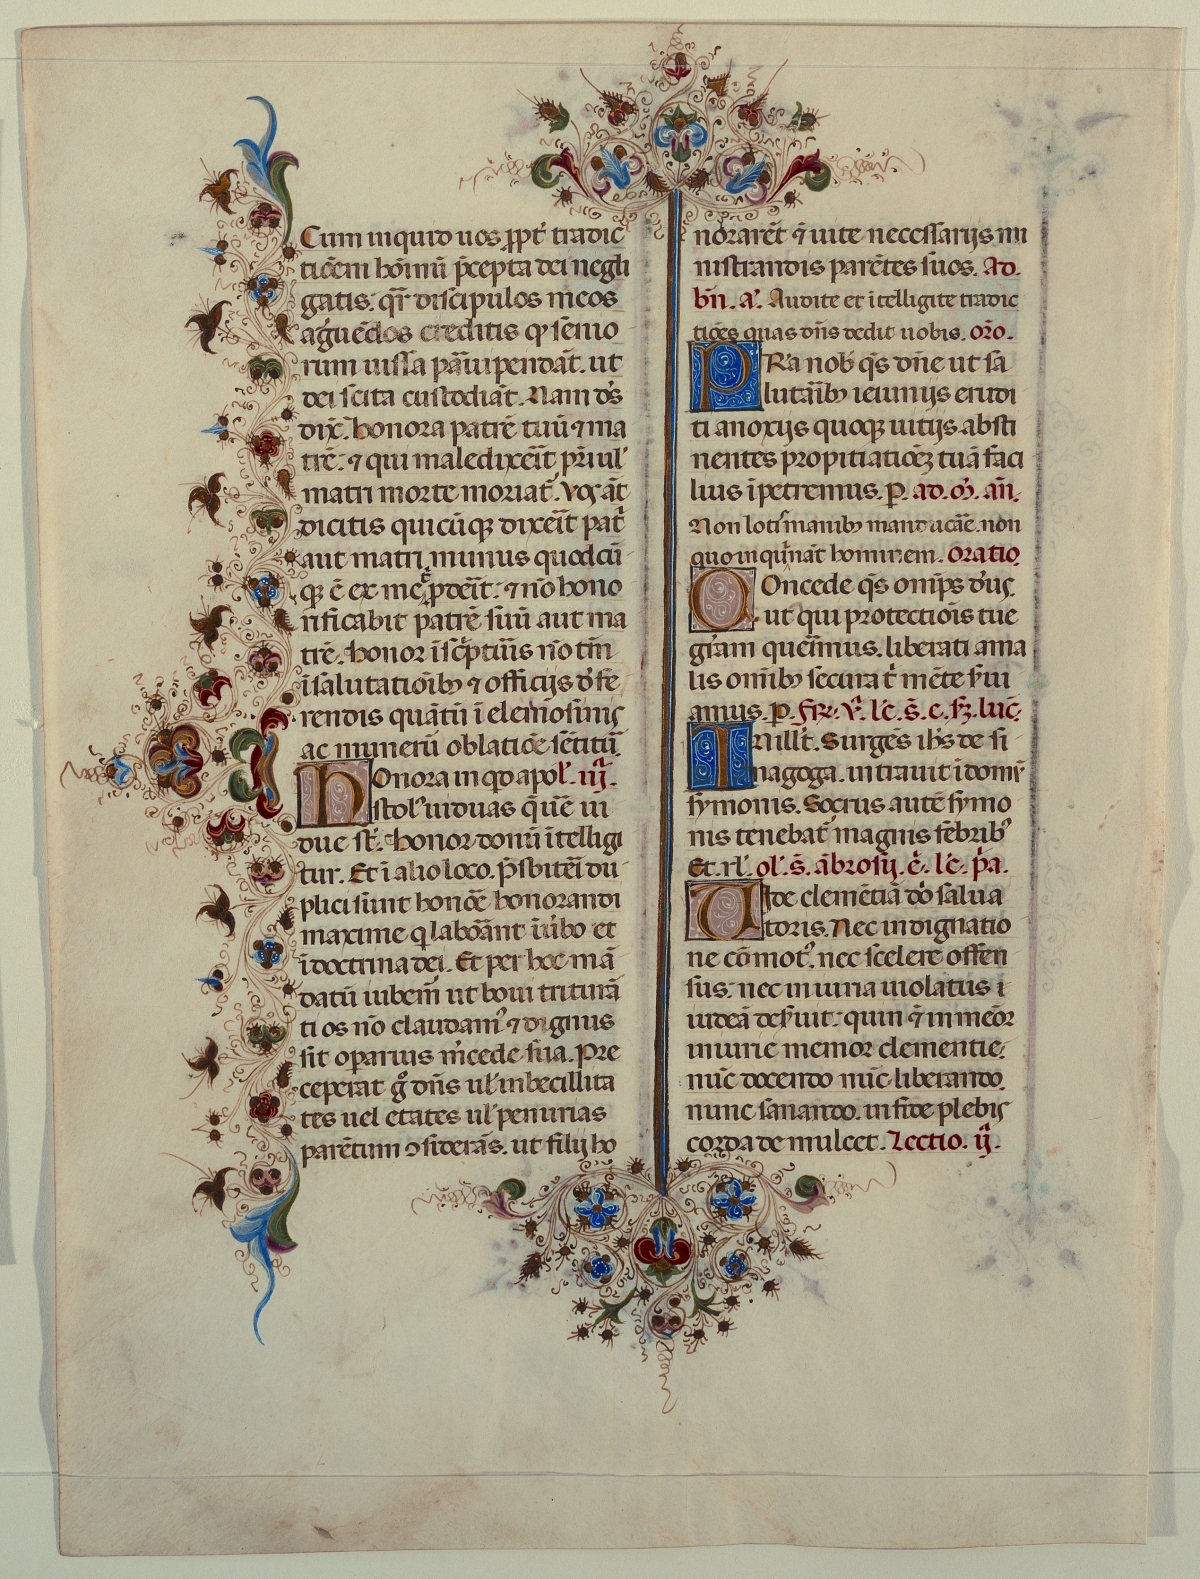 Cum inquid uos ꝓpt̃ tradic
tiõem hõinũ p̃cepta dei negli
gatis: qr̃ discipulos meos
aguẽdos creditis qꝫ senio
rum iussa parui pendãt. ut
dei scita custodiãt. Nam dñs
dix̃. honora patrẽ tuũ ⁊ ma
trẽ: ⁊ qui maledixerit pr̃i ul̃
matri morte moriat̃. Vos ãt
dicitis quicũqꝫ dixerit patri
aut matri munus quodcũ
qꝫ ẽ ex me ꝓderit: ⁊ nõ hono
rificabit patrẽ suũ aut ma
trẽ. honor i scpturis nõ tm̃
i salutatiõibꝫ ⁊ officijs dfe
rendis quãtũ i elemosinis
ac munerũ oblatiõe sẽtitur̃
Onora inqd apol̃. iij.
HOnora
stol' uiduas que ui
due st̃. honor donũ itelligi
tur. Et i alio loco. p̃sbiteri du
plici sunt honore honorandi
maxime q laborãnt i ũbo et
i doctrina dei. Et per hoc mã
datũ iubem̃ ut boui triturã
ti os nõ claudam9 ⁊ dignus
sit operarius mcede sua. Pre
ceperat g̊ dñs ul̃ inbecillita
tes uel etates ul̃ penurias
parẽtum ↄsiderãs. ut filij ho
norarẽt ⁊ uite necessarijs mi
nistrandis parẽtes suos. Ad.
bñ. añ. Audite et itelligite tradic
tiões quas dñs dedit uobis. orõ.
PRa nob q̃s dñe ut sa
lutarĩbꝫ ieiunijs erudi
ti a noxijs quoqꝫ uitijs absti
nentes propitiatiõeꝫ tuã faci
lius ipetremus. P. ad. m̃. añ.
Non lotis manibꝫ manducare. non
quoinquinãt hominem. oratio.
COncede q̃s omips d'us
ut qui protectiõis tue
grãm querimus. liberati a ma
lis omibꝫ secura t' mẽte ser'ui
amus. P. Fr̃. v̊. lc̃. s̃. e. sꝫ. luc̃.
IN ill' t̃. Surgẽs ihs de si
nagoga. intrauit i domũ
symonis. Socrus autẽ symo
nis tenebat̃ magnis febrib9
Et. rl̃. ol̃. s̃. ãbrosij. ẽ. lc̃. p̃a.
UIde clemẽtiã dñi salua
toris. Nec indignatio
ne cõmot9. nec scelere offen
sus: nec iniuria uiolatus i
iudeã des̃uit: quin ⁊ inmemor
iniurie memor clementie:
nũc docendo nũc liberando.
nunc sanando. infide plebis
corda de mulcet. Lectio. ij.